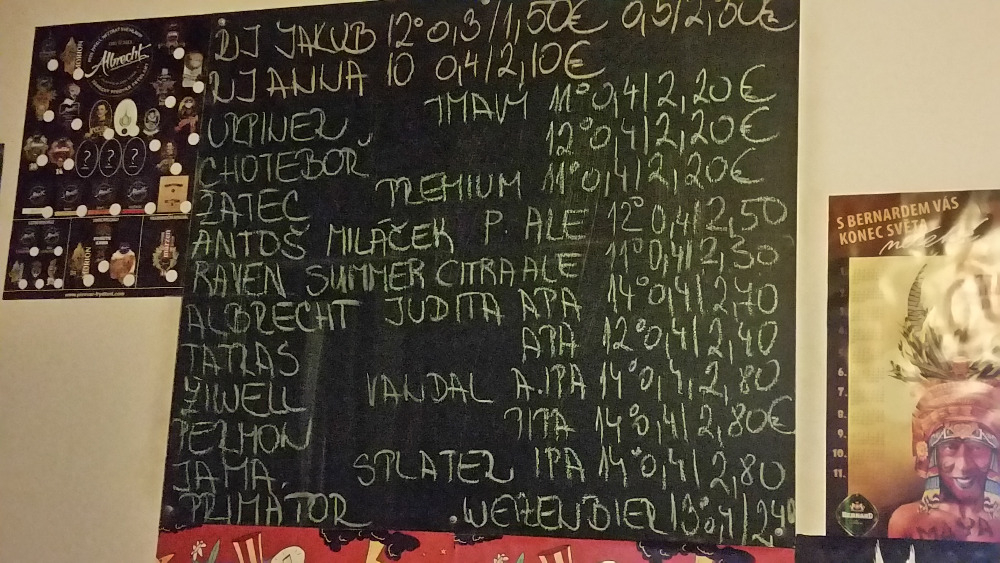 DJ JAKUB 12° 0,3/1,50€ 0,5/2,50€
DJ ANNA 10 0,4/2,10€
URPINER TMAVÝ 11° 0,4/2,20€
CHOTEBOR 12° 0,4/2,20€
ŽATEC PREMIUM 11° 0,4/2,20€
ANTOŠ MILÁČEK P. ALE 12° 0,4/2,50
RAVEN SUMMER CITRA ALE 11° 0,4/2,50
ALBRECHT JUDITA APA 14° 0,4/2,70
TATRAS APA 12° 0,4/2,40
ZIWELL VANDAL A.IPA 14° 0,4/2,80
PERMON IPA 14° 0,4/2,80€
JAMA SPLATER IPA 14° 0,4/2,80
PRIMATOR WEIZENBIER 13° 0,4/2,40
Albrecht
? ? ?
MORION
www.pivovar-frydlant.com
S BERNARDEM VÁS
KONEC SVĚTA
6.
7.
8.
9.
10.
11.
BERNARD